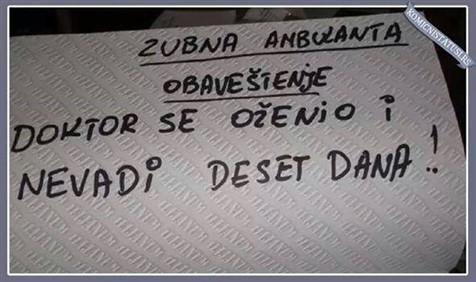 KOMICNISTATUSI.RS
ZUBNA AMBULANTA
OBAVEŠTENJE
DOKTOR SE OŽENIO I
NEVADI DESET DANA!!